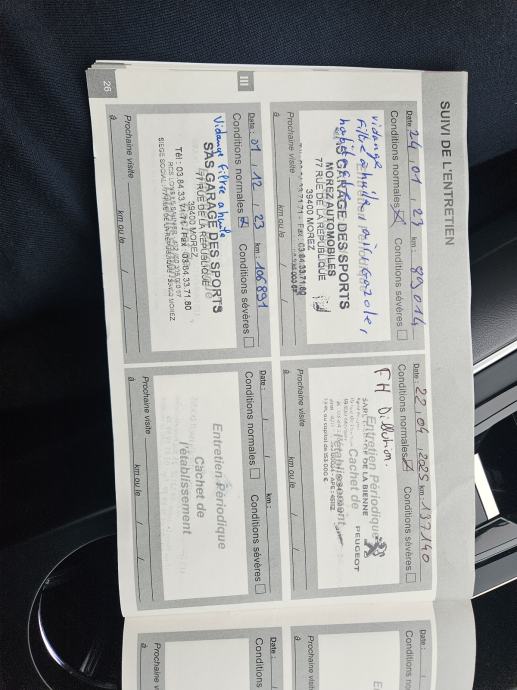 SUIVI DE L'ENTRETIEN
Date : 24 / 01 / 23 km : 89 014
Conditions normales ☒ Conditions sévères ☐
vidange
Filtre à huile
GARAGE DES SPORTS
MOREZ AUTOMOBILES
77 RUE DE LA REPUBLIQUE
39400 MOREZ
Prochaine visite
à km ou le / /
Date : 22 / 04 / 2025 km : 137140
Conditions normales ☒ Conditions sévères ☐
Entretien Périodique
Cachet de
l'établissement
DE LA BIENNE
PEUGEOT
Prochaine visite
à km ou le / /
Date : 01 / 12 / 23 km : 106891
Conditions normales ☒ Conditions sévères ☐
Vidange filtre huile
SAS GARAGE DES SPORTS
77 RUE DE LA REPUBLIQUE
39400 MOREZ
Tél : 03.84.33.71.71 - Fax : 03.84.33.71.80
Prochaine visite
à km ou le / /
Date : / / km :
Conditions normales ☐ Conditions sévères ☐
Entretien Périodique
Cachet de
l'établissement
Prochaine visite
à km ou le / /
III
26
Date :
Conditions no
Prochaine visite
à
Date : /
Conditions
Prochaine visite
à